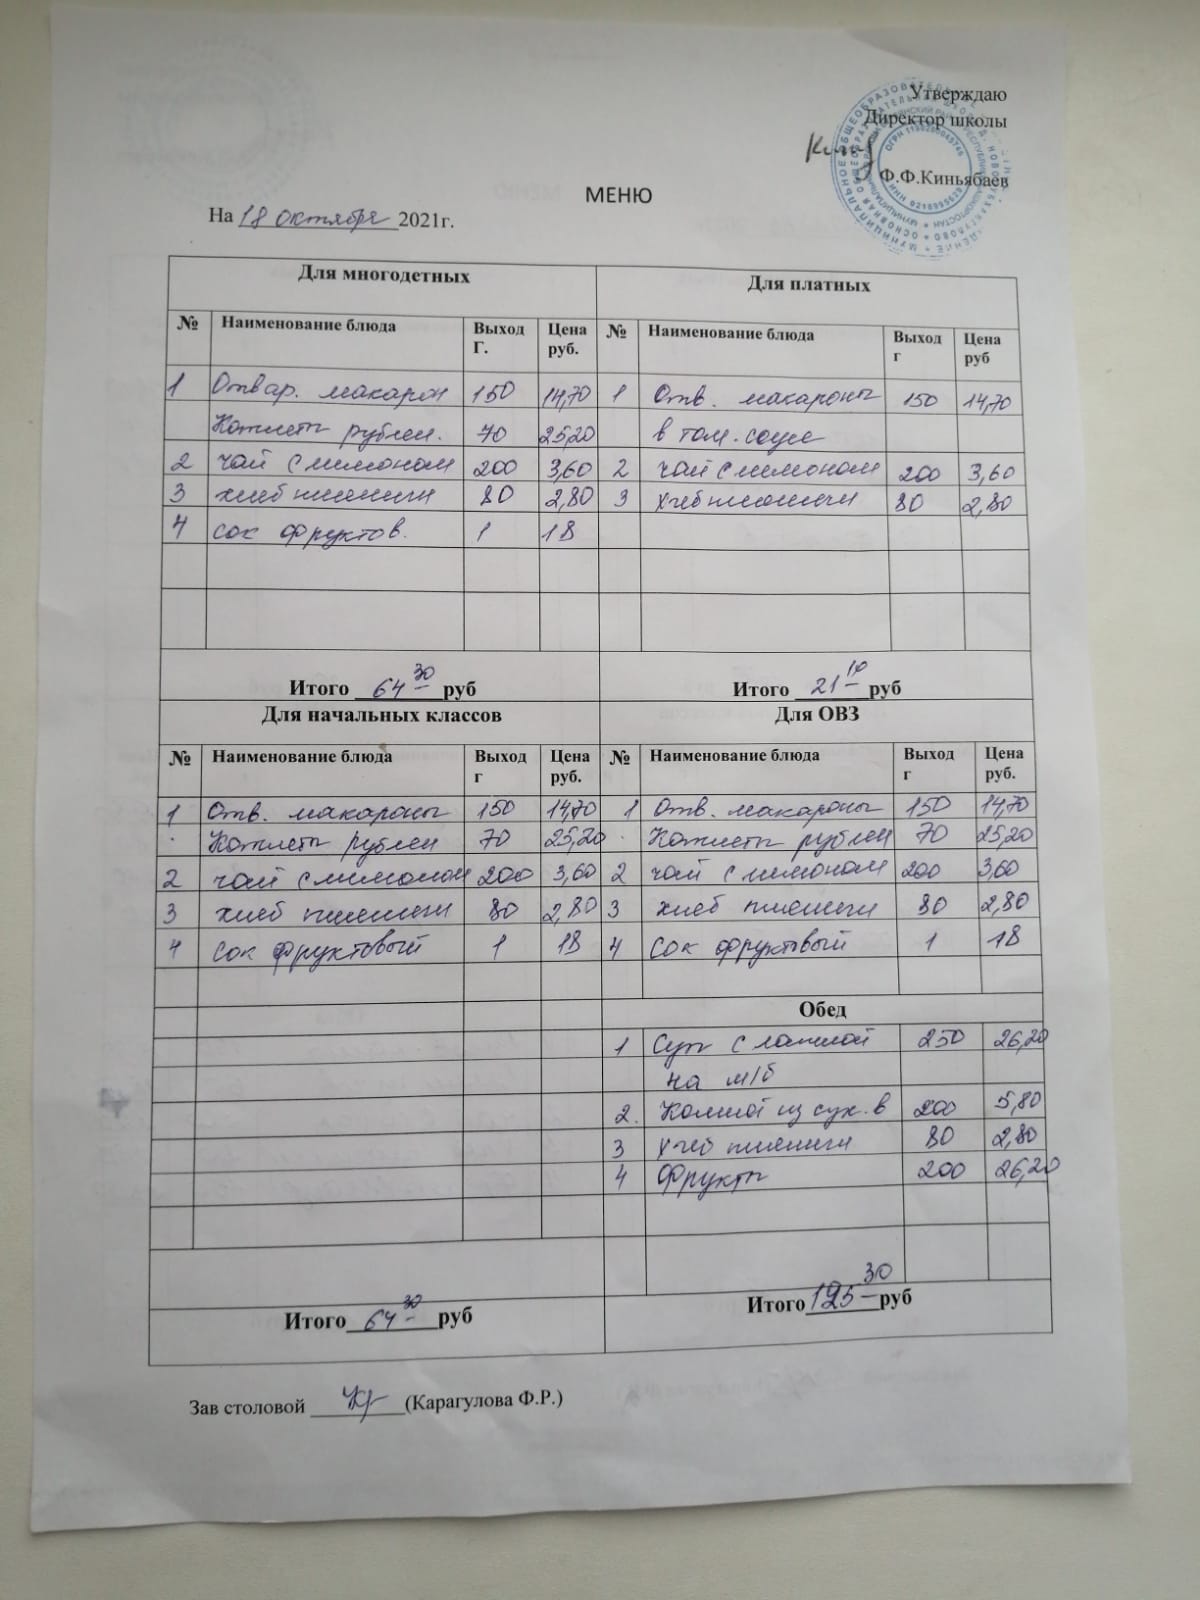 Утверждаю
Директор школы
Ф.Ф.Киньябаев
МЕНЮ
На 18 октября 2021г.
Для многодетных
№ Наименование блюда Выход Г. Цена руб.
1 Отвар. макарон 150 14,70
Котлеты рублен. 70 25,20
2 чай с лимоном 200 3,60
3 хлеб пшеничн 80 2,80
4 сок фруктов. 1 18
Итого 64 30 руб
Для платных
№ Наименование блюда Выход г Цена руб
1 Отв. макароны 150 14,70
в том. соусе
2 чай с лимоном 200 3,60
3 хлеб пшеничн 80 2,80
Итого 21 10 руб
Для начальных классов
№ Наименование блюда Выход г Цена руб.
1 Отв. макароны 150 14,70
Котлеты рублен 70 25,20
2 чай с лимоном 200 3,60
3 хлеб пшеничн 80 2,80
4 сок фруктовый 1 18
Итого 64 30 руб
Для ОВЗ
№ Наименование блюда Выход г Цена руб.
1 Отв. макароны 150 14,70
Котлеты рублен 70 25,20
2 чай с лимоном 200 3,60
3 хлеб пшеничн 80 2,80
4 сок фруктовый 1 18
Обед
1 Суп с лапшой 250 26,20
на м/б
2. Компот из сух. в 200 5,80
3 хлеб пшеничн 80 2,80
4 Фрукты 200 26,20
Итого 125 30 руб
Зав столовой (Карагулова Ф.Р.)